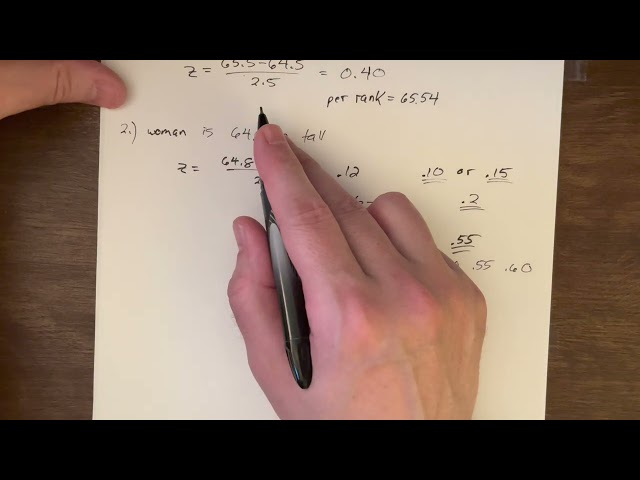 z = 65.5-64.5 / 2.5 = 0.40
per rank = 65.54
2.) woman is 64. tall
z = 64.8 .12 .10 or .15
.2
.55
.55 .60